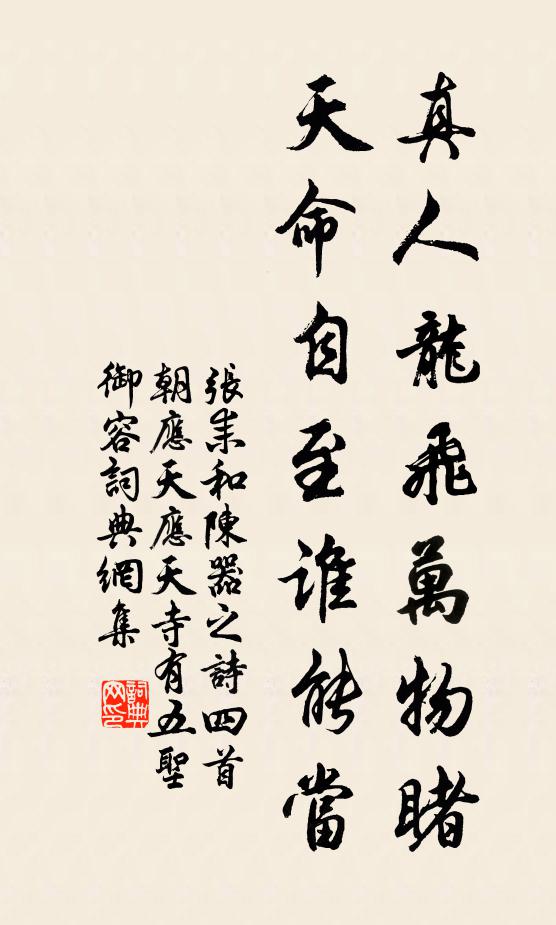 真人龍飛萬物睹
天命自至誰能當
張耒和陳器之詩四首
朝應天應天寺有五聖
御容詞典網集
詞典网印